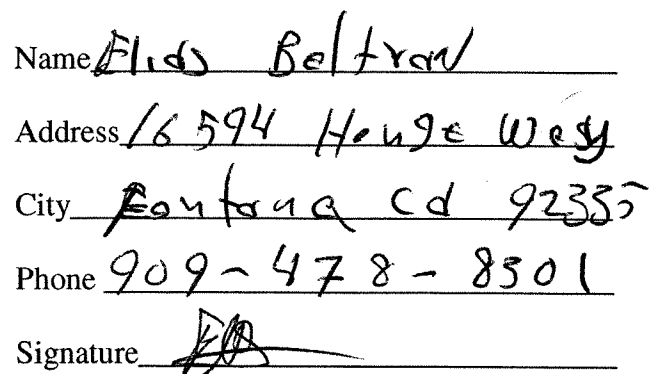 Name Elias Beltran
Address 16594 Henge Way
City Fontana Ca 92335
Phone 909-478-8301
Signature